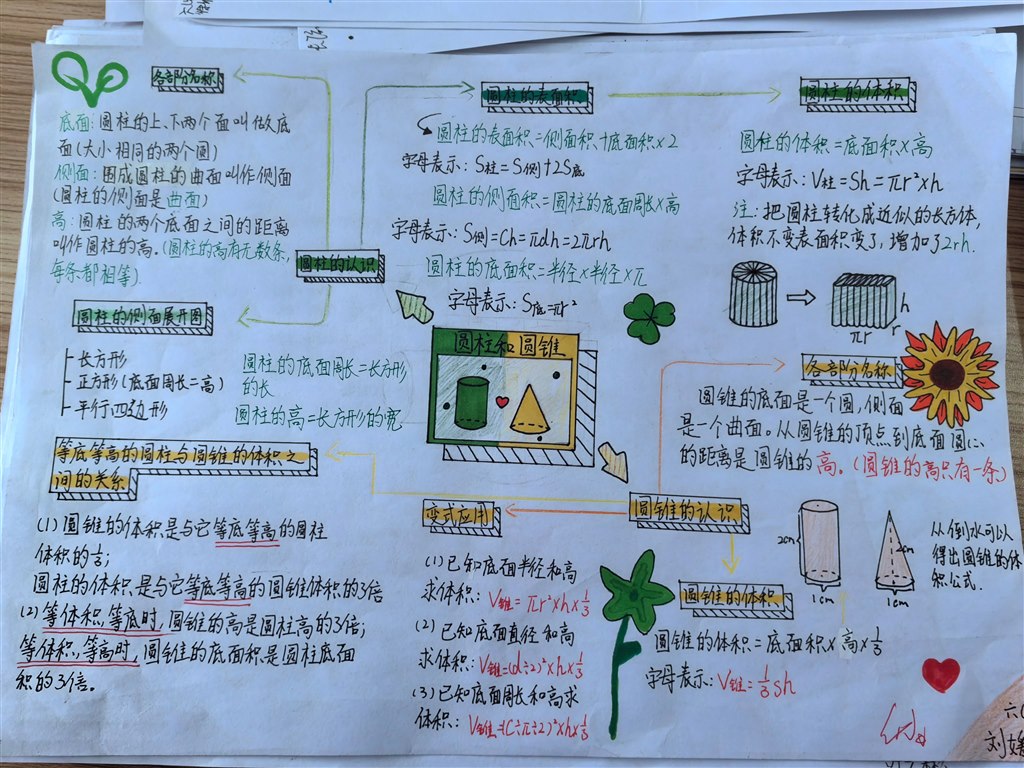 各部分名称
底面:圆柱的上、下两个面叫做底
面(大小相同的两个圆)
侧面:围成圆柱的曲面叫作侧面
(圆柱的侧面是曲面)
高:圆柱的两个底面之间的距离
叫作圆柱的高。(圆柱的高有无数条,
每条都相等)
圆柱的认识
圆柱的侧面展开图
长方形
正方形(底面周长=高)
平行四边形
圆柱的底面周长=长方形
的长
圆柱的高=长方形的宽
圆柱的表面积
圆柱的表面积=侧面积+底面积×2
字母表示:S柱=S侧+2S底
圆柱的侧面积=圆柱的底面周长×高
字母表示:S侧=Ch=πdh=2πrh
圆柱的底面积=半径×半径×π
字母表示:S底=πr²
圆柱的体积
圆柱的体积=底面积×高
字母表示:V柱=Sh=πr²×h
注:把圆柱转化成近似的长方体,
体积不变表面积变了,增加了2rh.
h
r
πr
圆柱和圆锥
各部分名称
圆锥的底面是一个圆,侧面
是一个曲面。从圆锥的顶点到底面圆心
的距离是圆锥的高。(圆锥的高只有一条)
等底等高的圆柱与圆锥的体积之
间的关系
(1)圆锥的体积是与它等底等高的圆柱
体积的1/3;
圆柱的体积是与它等底等高的圆锥体积的3倍
(2)等体积,等底时,圆锥的高是圆柱高的3倍;
等体积,等高时,圆锥的底面积是圆柱底面
积的3倍。
变式应用
(1)已知底面半径和高
求体积:V锥=πr²×h×1/3
(2)已知底面直径和高
求体积:V锥=(d÷2)²×h×1/3
(3)已知底面周长和高求
体积:V锥=(C÷π÷2)²×h×1/3
圆锥的认识
2cm
1cm
2cm
1cm
从倒水可以
得出圆锥的体
积公式.
圆锥的体积
圆锥的体积=底面积×高×1/3
字母表示:V锥=1/3sh
六(
刘